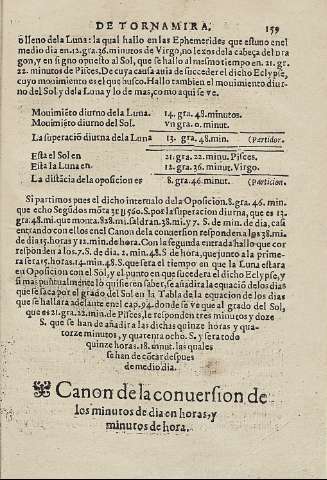 DE TORNAMIRA. 159
ò lleno de la Luna: la qual hallo en las Ephemerides que estuno en el
medio dia en.12.gra.36.minutos de Virgo, no lexos dela cabeça del Dra
gon, y en signo opuesto al Sol, que se hallo al mesmo tiempo en. 21. gr.
22. minutos de Pisces. De cuya causa auia de succeder el dicho Eclypse,
cuyo momento es el que busco. Hallo tambien el mouimiento diurno
del Sol y de la Luna y lo de mas, como aqui se ve.
Mouimiẽto diurno de la Luna. 14. gra. 48. minutos.
Mouimiẽto diurno del Sol. vn gra. 0. minut.
La superaciõ diurna de la Luna 13. gra. 48. min. (Partidor.
Esta el Sol en 21. gra. 22. minu. Pisces.
Esta la Luna en. 12. gra. 36. minut. Virgo.
La distãcia de la oposicion es 8. gra. 46. minut. (Particion.
Si partimos pues el dicho interualo de la Oposicion. 8. gra. 46. min.
que echo Segũdos mõta 31 ų 560. S. por la superacion diurna, que es 13.
gra. 48. mi. que son. 828. mi. saldran. 38. mi. y 7. S. de min. de dia, cõ
entrando con ellos en el Canon dela conuersion responden a los 38. mi.
de dia 15. horas y 12. min. de hora. Con la segunda entrada hallo que cor
responden a los. 7. S. de dia. 2. min. 48. S. de hora, que junto a la prime-
ra sera 15. horas 14. min. 48. S. que sera el tiempo en que la Luna estara
en Oposicion con el Sol, y el punto en que sucedera el dicho Eclypse, y
si mas puntualmente lo quisieren saber, se añadira la equaciõ delos dias
que se saca por el grado del Sol en la Tabla de la equacion de los dias
que se hallara adelante en el cap. 94. donde se ve que al grado del Sol,
que es 21. gra. 22. min. de Pisces, le responden tres minutos y doze
S. que se han de añadir a las dichas quinze horas y qua-
torze minutos, y quarenta ocho. S. y sera todo
quinze horas. 18. minut. las quales
se han de cõtar despues
de medio dia.
Canon de la conuersion de
los minutos de dia en horas, y
minutos de hora.